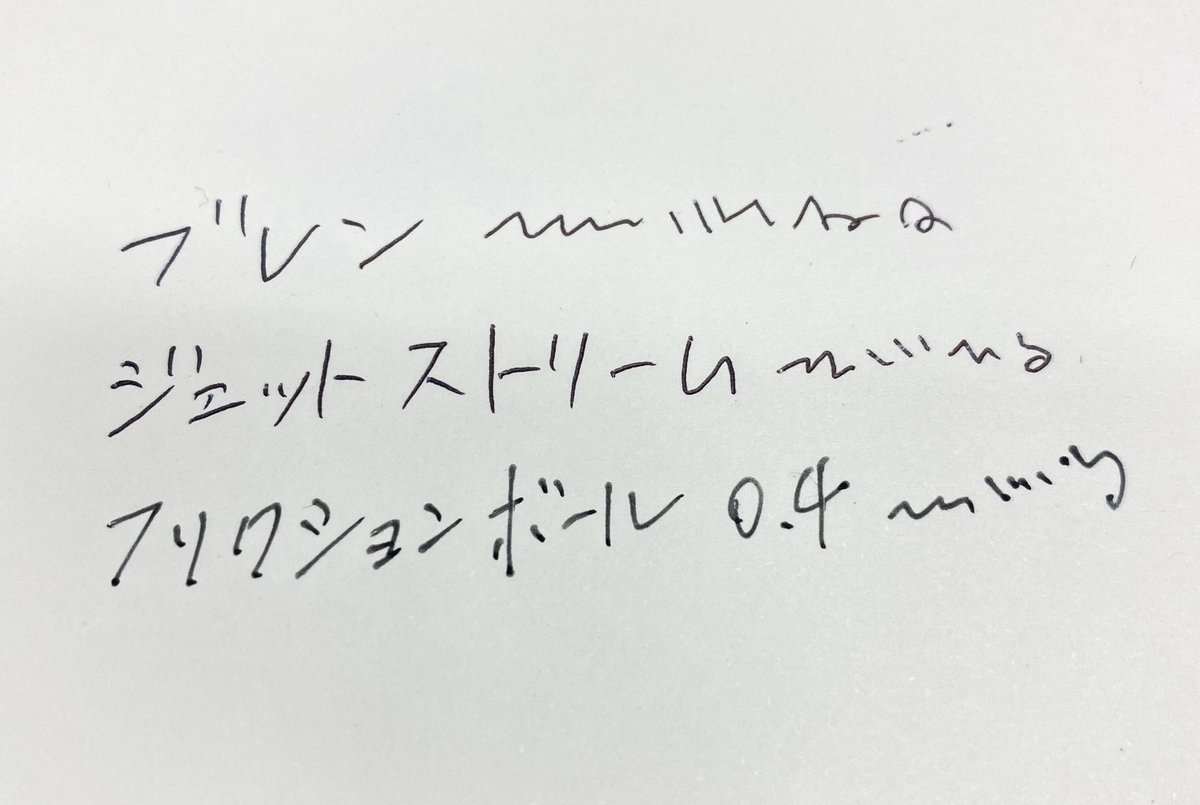 ブレン
ジェットストリーム
フリクションボール 0.4